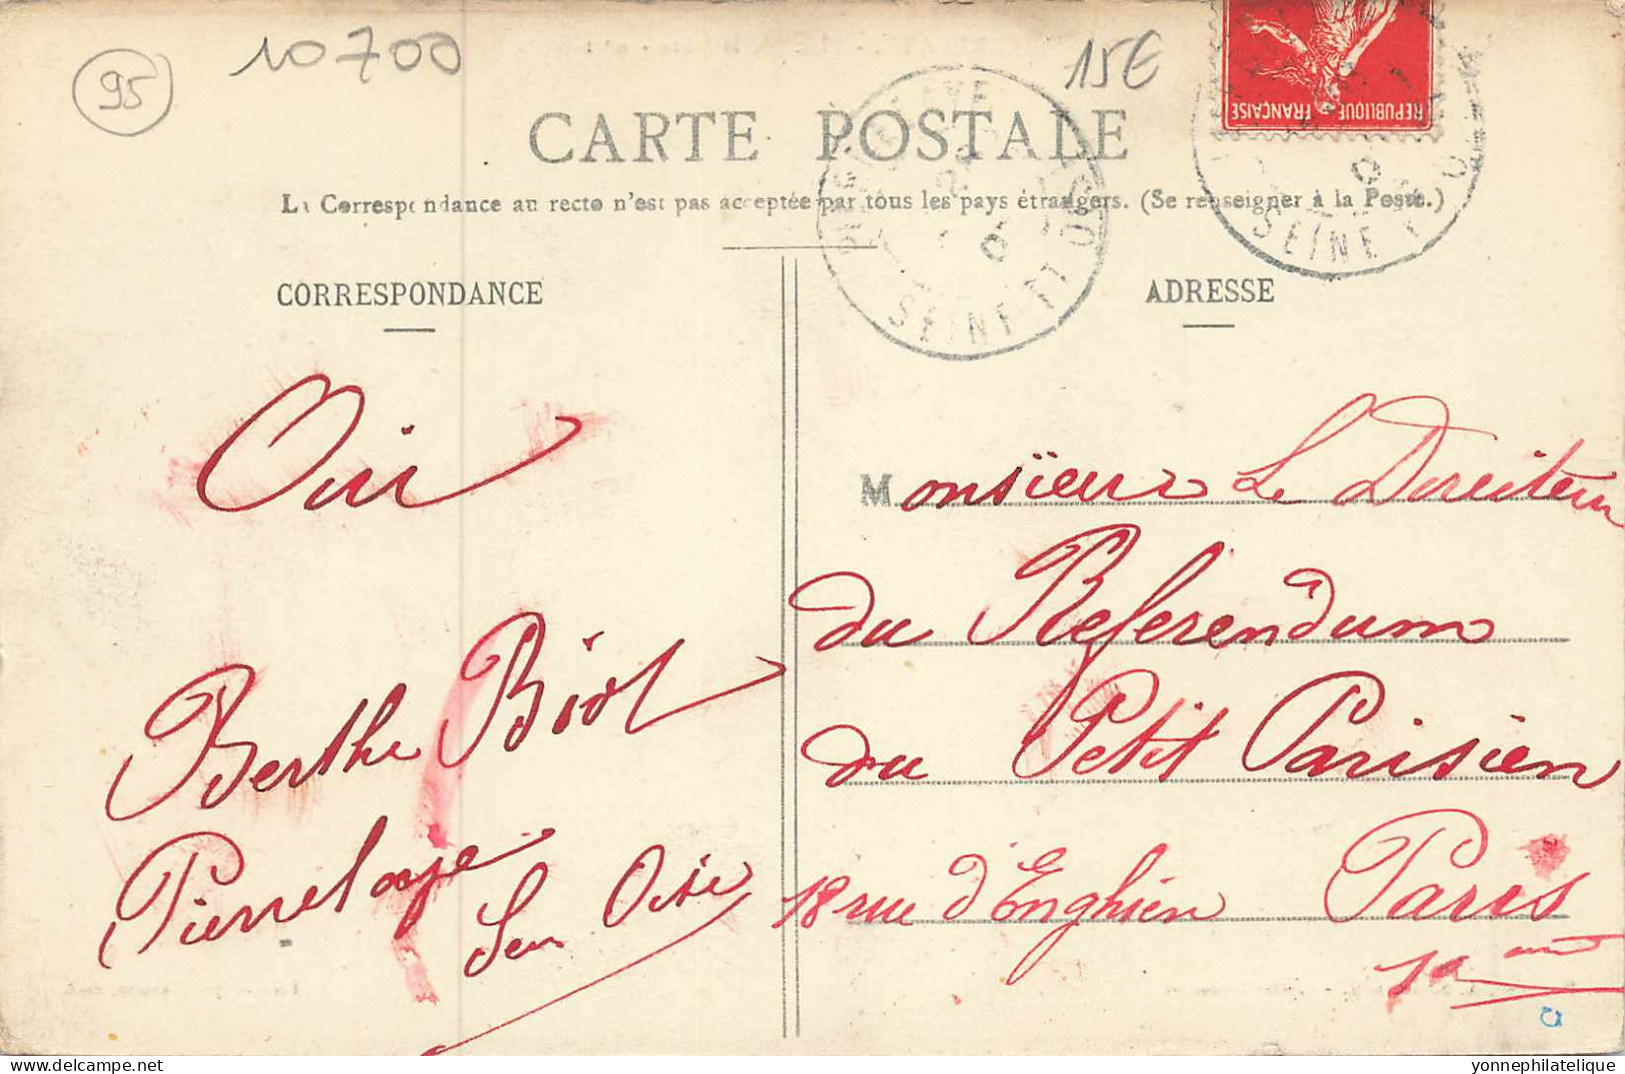 95
10700
15€
REPUBLIQUE FRANÇAISE
CARTE POSTALE
La Correspondance au recto n'est pas acceptée par tous les pays étrangers. (Se renseigner à la Poste.)
PIERRELAYE
SEINE-ET-OISE
SEINE-ET-O
CORRESPONDANCE
ADRESSE
Oui
Berthe Biot
Pierrelaye
Sen Oise
Monsïeur Le Direiteur
du Referendum
du Petit Parisien
18 rue d'Enghien Paris
yonnephilatelique